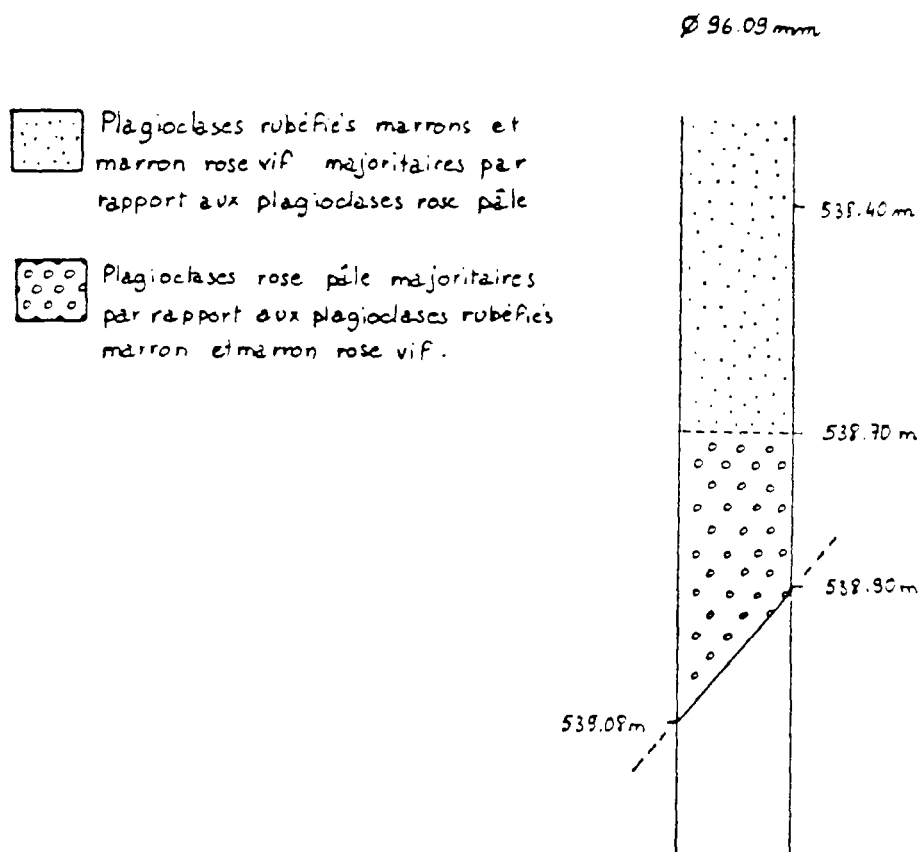 Ø 96.09 mm
Plagioclases rubéfiés marrons et
marron rose vif majoritaires par
rapport aux plagioclases rose pâle
538.40 m
Plagioclases rose pâle majoritaires
par rapport aux plagioclases rubéfiés
marron et marron rose vif.
538.70 m
538.90 m
539.08 m